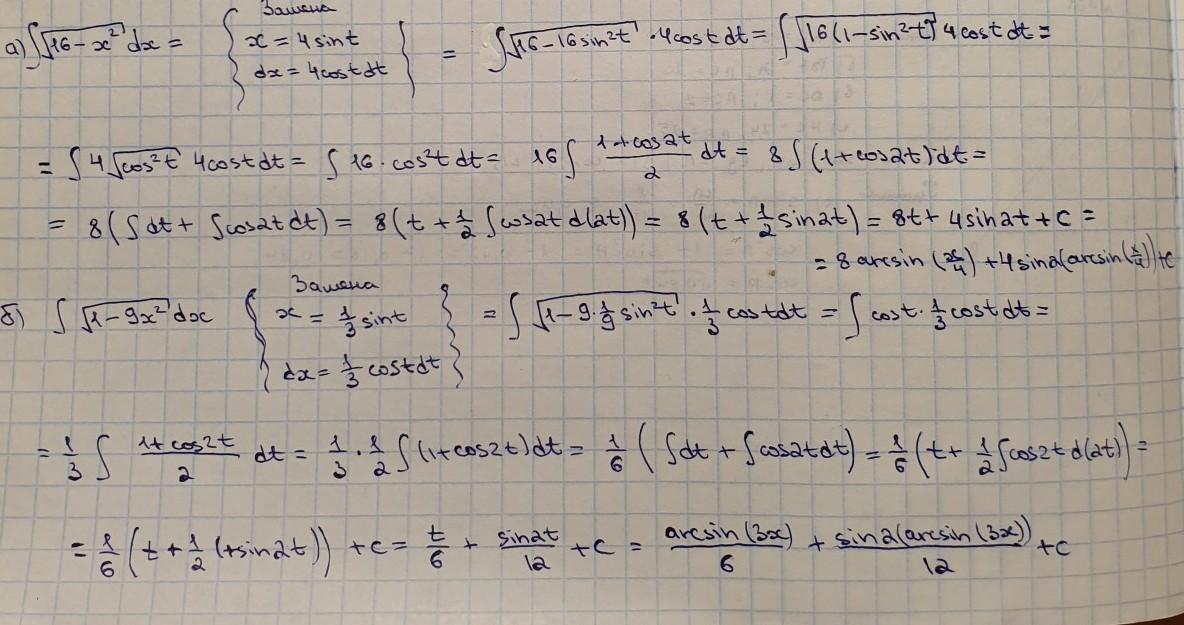 Замена
а) ∫√(16-x²) dx = { x = 4sint } = ∫√(16-16sin²t) · 4costdt = ∫√(16(1-sin²t)) 4costdt =
dx = 4costdt
= ∫ 4√(cos²t) 4costdt = ∫ 16·cos²t dt = 16∫ (1+cos2t)/2 dt = 8 ∫(1+cos2t)·dt =
= 8(∫dt + ∫cos2tdt) = 8(t + 1/2 ∫cos2t d(2t)) = 8(t + 1/2 sin2t) = 8t + 4sin2t + c =
= 8 arcsin (x/4) + 4sin2(arcsin(x/4)) + c
Замена
б) ∫ √(1-9x²) dx { x = 1/3 sint } = ∫ √(1-9·1/9 sin²t) · 1/3 costdt = ∫ cost · 1/3 costdt =
dx = 1/3 costdt
= 1/3 ∫ (1+cos2t)/2 dt = 1/3 · 1/2 ∫(1+cos2t)dt = 1/6 (∫dt + ∫cos2tdt) = 1/6 (t + 1/2 ∫cos2t d(2t)) =
= 1/6 (t + 1/2 (+sin2t)) + c = t/6 + sin2t/12 + c = arcsin(3x)/6 + sin2(arcsin(3x))/12 + c